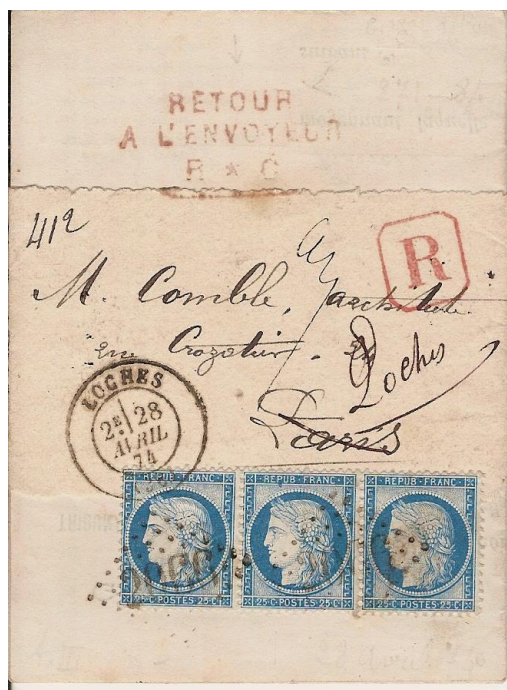 RETOUR
A L'ENVOYEUR
R * C
412
R
M. Comble,
rue Crozatier
Loches
Paris
LOCHES
2E 28
AVRIL
74
REPUB·FRANC· REPUB·FRANC· REPUB·FRANC·
25·C·POSTES·25·C· 25·C·POSTES·25·C· 25·C·POSTES·25·C·